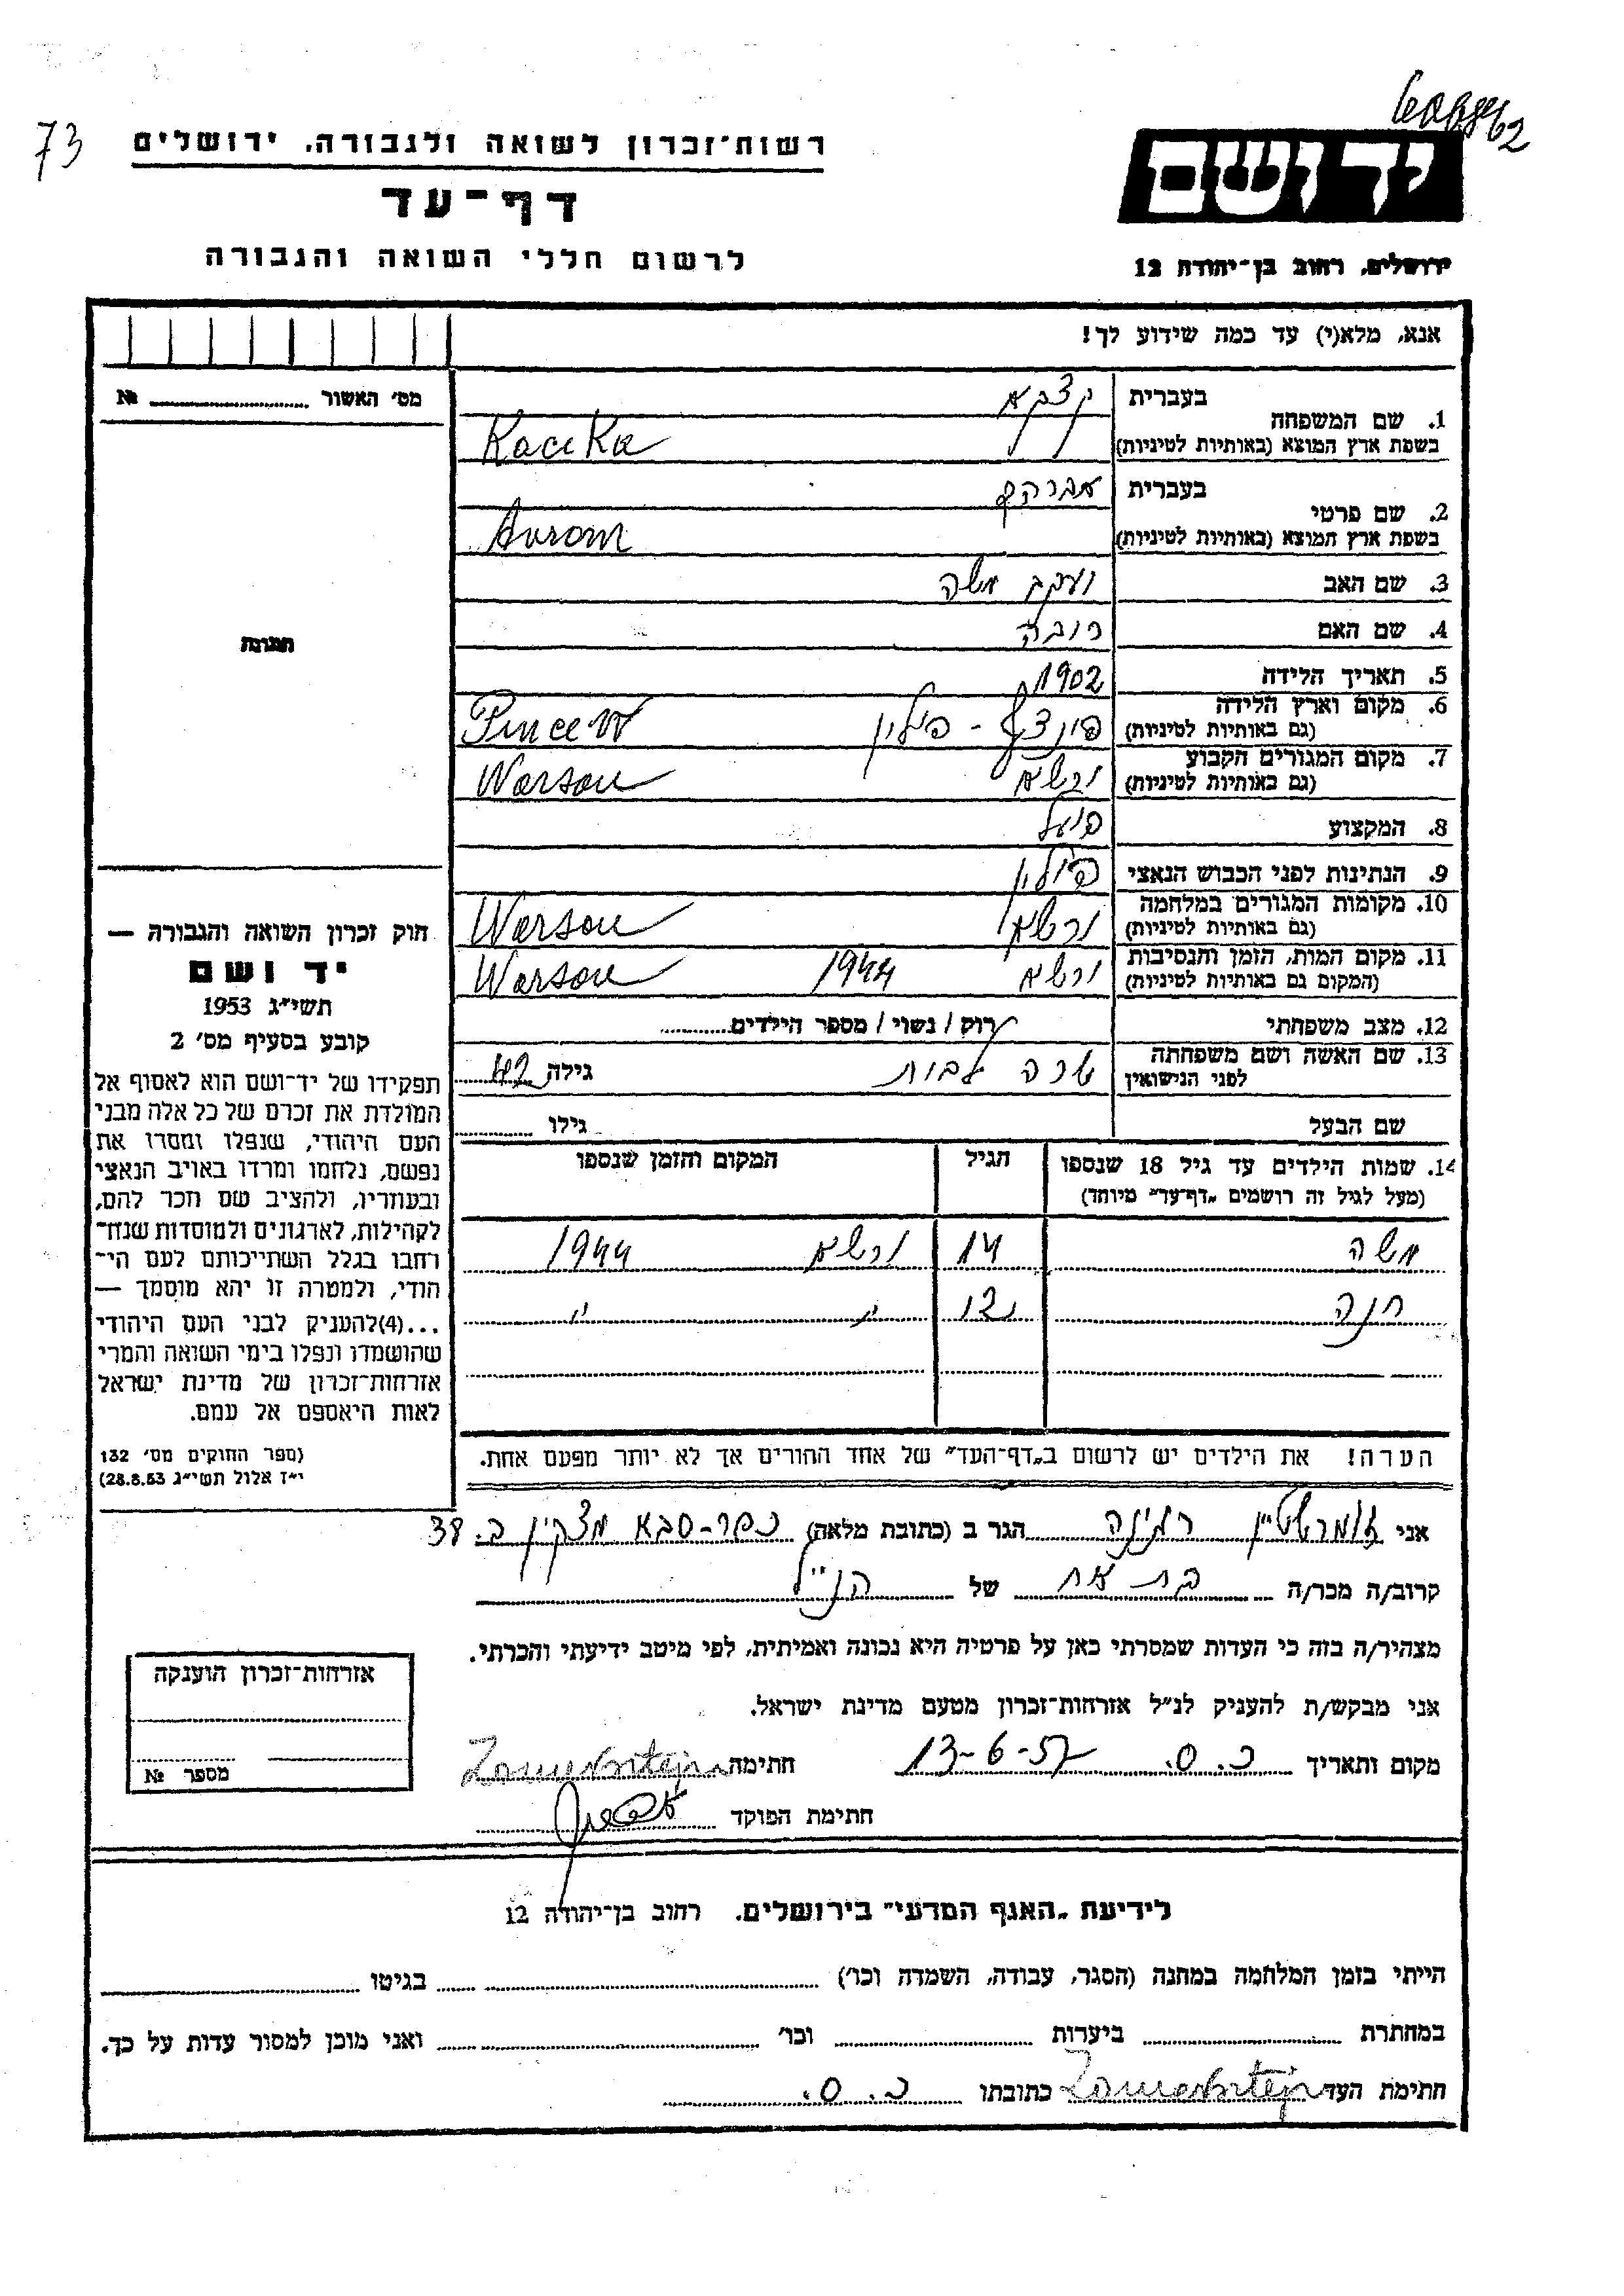 73
רשות־זכרון לשואה ולגבורה. ירושלים
דף־עד
לרשום חללי השואה והגבורה
יד ושם
ירושלים, רחוב בן־יהודה 12
אנא, מלא(י) עד כמה שידוע לך!
מס׳ האשור №
1. שם המשפחה
בעברית
בשפת ארץ המוצא (באותיות לטיניות)
Kacika
2. שם פרטי
בעברית אברהם
בשפת ארץ המוצא (באותיות לטיניות) Avrom
3. שם האב יעקב משה
4. שם האם
5. תאריך הלידה 1902
6. מקום וארץ הלידה
(גם באותיות לטיניות) פולין - Pincew
7. מקום המגורים הקבוע
(גם באותיות לטיניות) ורשא Warsau
8. המקצוע פועל
9. הנתינות לפני הכבוש הנאצי פולין
10. מקומות המגורים במלחמה
(גם באותיות לטיניות) ורשא Warsau
11. מקום המות, הזמן והנסיבות
(המקום גם באותיות לטיניות) ורשא 1944 Warsau
12. מצב משפחתי רוק / נשוי / מספר הילדים
13. שם האשה ושם משפחתה
לפני הנישואין שרה גילה 42
שם הבעל גילו
14. שמות הילדים עד גיל 18 שנספו
(מעל לגיל זה רושמים „דף־עד״ מיוחד)
הגיל
המקום והזמן שנספו
משה 14 ורשא 1944
חנה 12 ״ ״
הערה! את הילדים יש לרשום ב„דף־העד״ של אחד ההורים אך לא יותר מפעם אחת.
תמונה
חוק זכרון השואה והגבורה —
יד ושם
תשי״ג 1953
קובע בסעיף מס׳ 2
תפקידו של יד־ושם הוא לאסוף אל
המולדת את זכרם של כל אלה מבני
העם היהודי, שנפלו ומסרו את
נפשם, נלחמו ומרדו באויב הנאצי
ובעוזריו, ולהציב שם וזכר להם,
לקהילות, לארגונים ולמוסדות שנח־
רחבו בגלל השתייכותם לעם הי־
הודי, ולמטרה זו יהא מוסמך —
...(4)להעניק לבני העם היהודי
שהושמדו ונפלו בימי השואה והמרי
אזרחות־זכרון של מדינת ישראל
לאות היאספם אל עמם.
(ספר החוקים מס׳ 132
י״ז אלול תשי״ג 28.8.53)
אני זומרשטיין רגינה הגר ב (כתובת מלאה) כפר-סבא מצקין ב. 38
קרוב/ה מכר/ה בת אח של הנ״ל
מצהיר/ה בזה כי העדות שמסרתי כאן על פרטיה היא נכונה ואמיתית, לפי מיטב ידיעתי והכרתי.
אני מבקש/ת להעניק לנ״ל אזרחות־זכרון מטעם מדינת ישראל.
מקום ותאריך כ.ס. 13-6-57 חתימה
חתימת הפוקד
אזרחות־זכרון הוענקה
מספר №
לידיעת „האגף המדעי״ בירושלים. רחוב בן־יהודה 12
הייתי בזמן המלחמה במחנה (הסגר, עבודה, השמדה וכו׳) בגיטו
במחתרת ביערות וכו׳ ואני מוכן למסור עדות על כך.
חתימת העד כתובתו כ.ס.